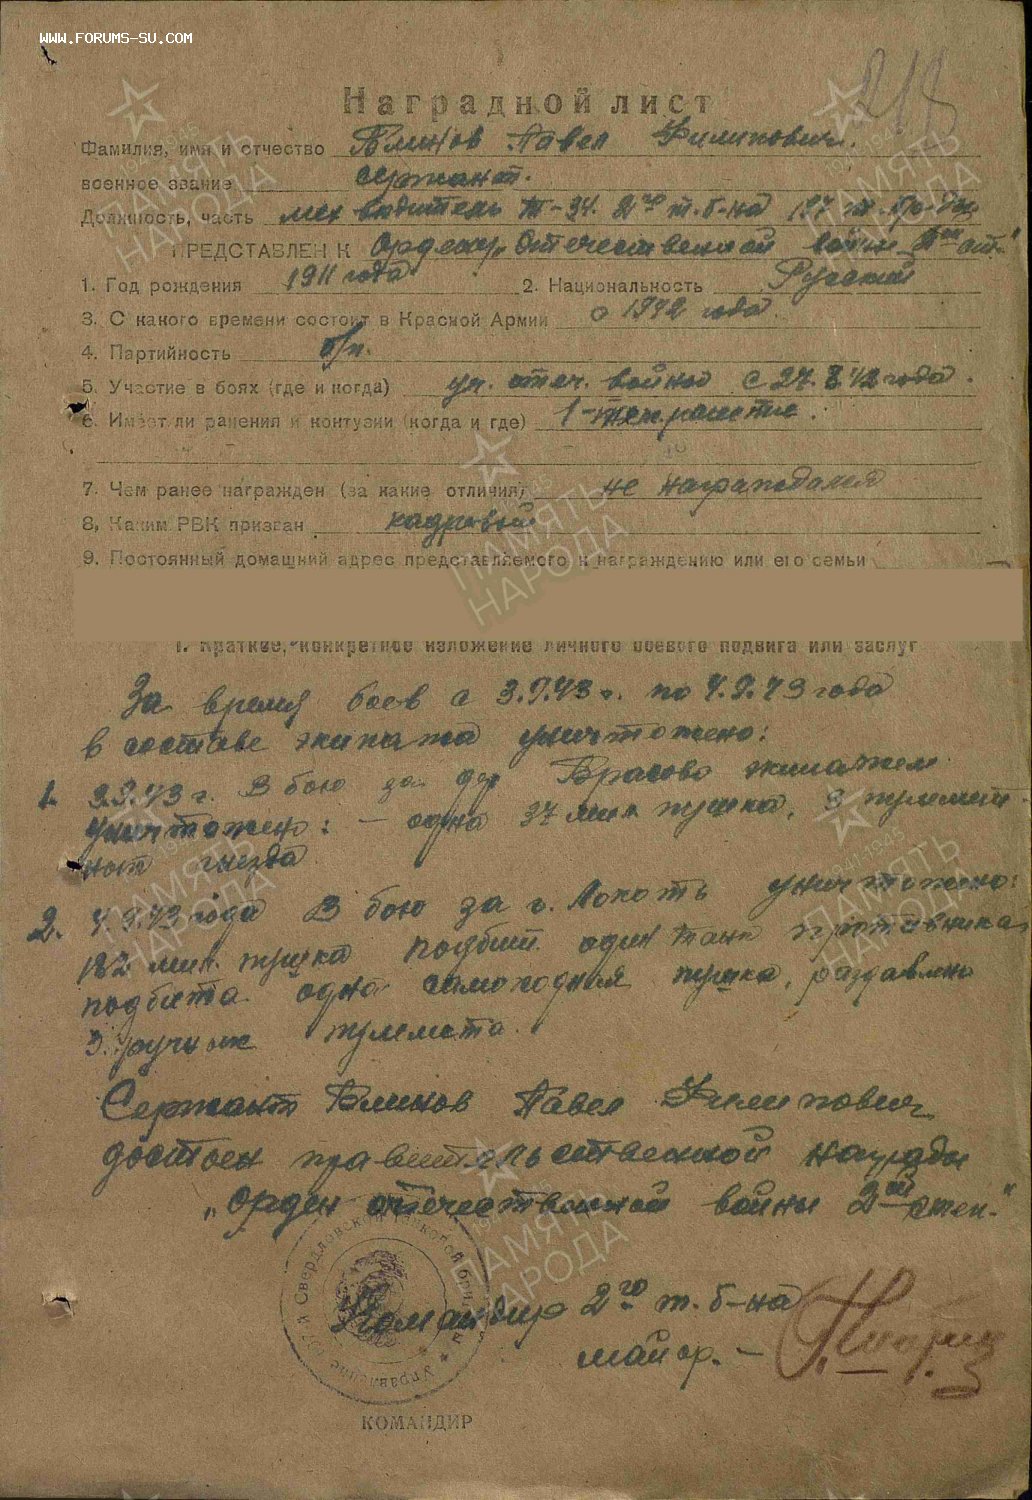 www.forums-su.com
Наградной лист
Фамилия, имя и отчество Блинов Павел Филипович.
военное звание сержант.
Должность, часть мех водитель Т-34. 2го т. б-на 197 т. бр-ды
ПРЕДСТАВЛЕН К Ордену „Отечественной войны 2й ст."
1. Год рождения 1911 года 2. Национальность Русский
3. С какого времени состоит в Красной Армии с 1942 года
4. Партийность б/п.
5. Участие в боях (где и когда) уч. отеч. войны с 27. 42 года.
6. Имеет ли ранения и контузии (когда и где) 1-тяж. ранение.
7. Чем ранее награжден (за какие отличия) не награждался
8. Каким РВК призван кадровый
9. Постоянный домашний адрес представляемого к награждению или его семьи
1. Краткое, конкретное изложение личного боевого подвига или заслуг
За время боев с 3.9.43 г. по 4.9.43 года
в составе экипажа уничтожено:
1. 3.9.43 г. В бою за дер Брасово экипажем
уничтожено: – одна 37 мил пушка, 3 пулемет-
ных гнезда
2. 4.9.43 года В бою за г. Локоть уничтожено:
мил. пушка подбит один танк противника
подбита одна самоходная пушка, раздавлено
3 ручных пулемета.
Сержант Блинов Павел Филипович
достоен правительственной награды
„орден отечественной войны 2й степ."
Командир 2го т. б-на
майор. –
Управление 197-й Свердловской танковой бригады
КОМАНДИР
ПАМЯТЬ НАРОДА
1941-1945